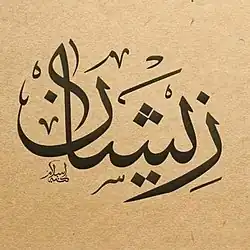 زیشان